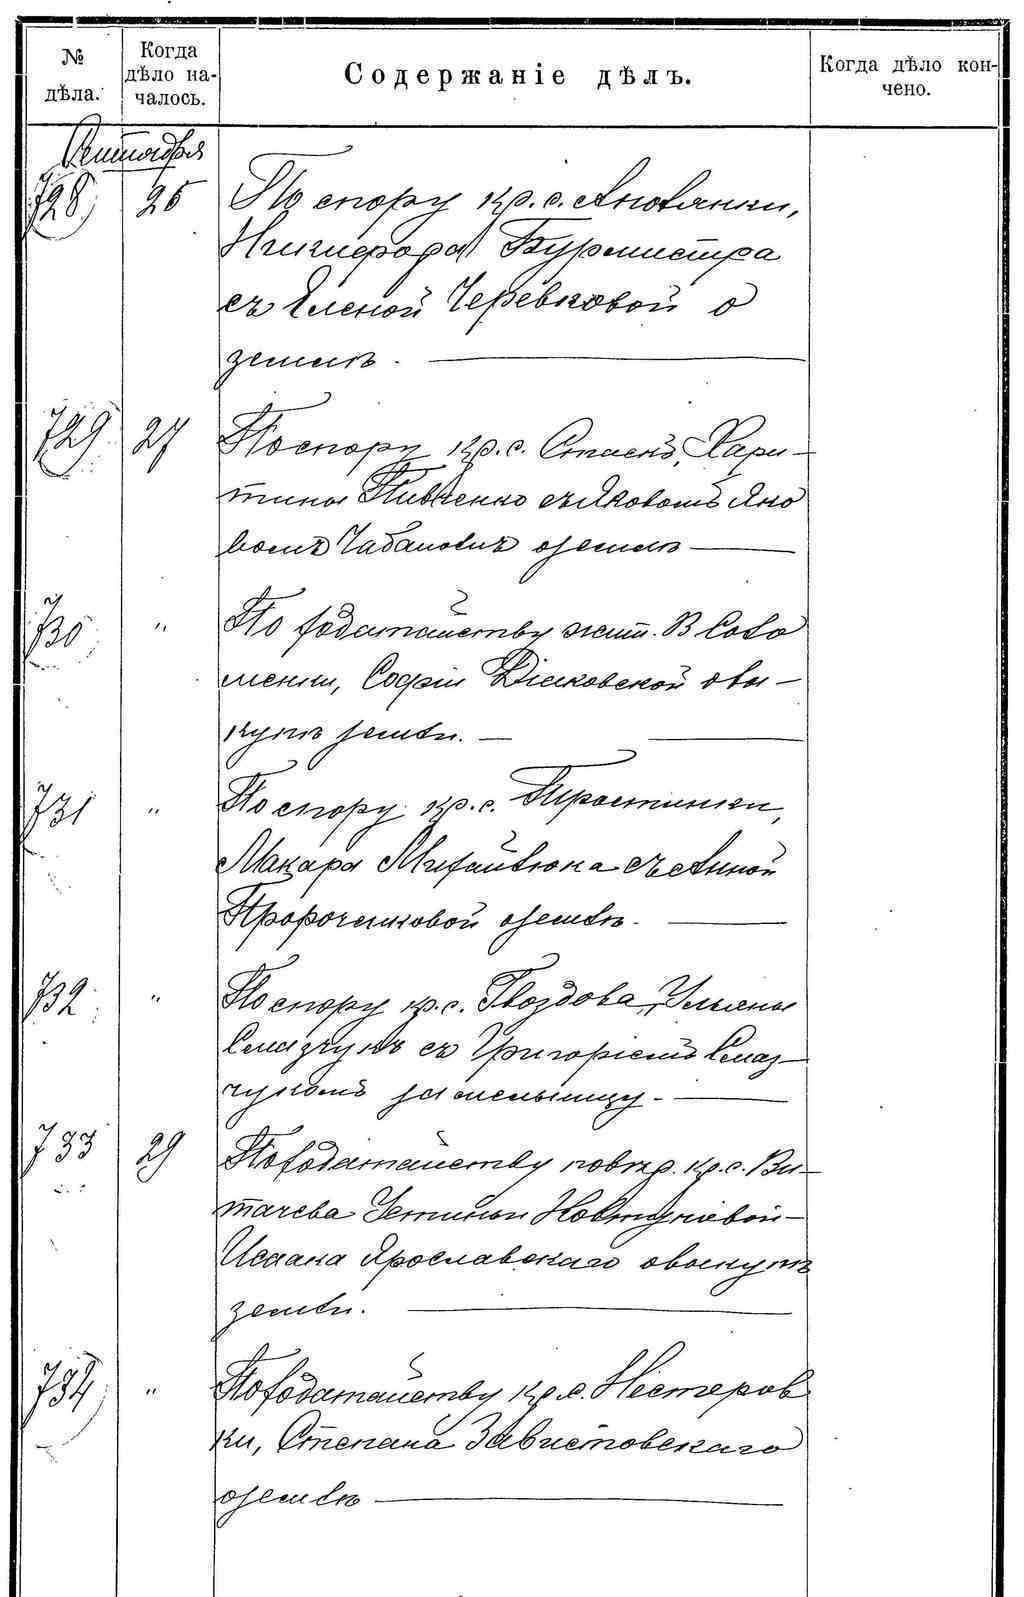 № дѣла.
Когда дѣло началось.
Содержаніе дѣлъ.
Когда дѣло кончено.
Сентября
728 25 По спору кр. с. Яновянки,
Никифора Бурмистра
съ Еленой Черевковой о
землѣ.
729 27 По спору кр. с. Стаекъ, Хари-
тины Пивненко съ Яковомъ Яко
вомъ Чабановъ о землѣ
730 " По ходатайству жит. В Соло
менки, Софіи Дісковской о вы-
купѣ земли.
731 " По спору кр. с. Тростинки,
Макара Михайлюка съ Анной
Пророченковой о землѣ.
732 " По спору кр. с. Гвоздова, Ульяны
Смазчукъ съ Григоріемъ Смаз-
чукомъ за мельницу.
733 29 По ходатайству повѣр. кр. с. Ви-
тачева Устиньи
Исаака Ярославскаго о выкупѣ
земли.
734 " По ходатайству кр. с. Нестеров
ки, Степана Завистовскаго
о землѣ